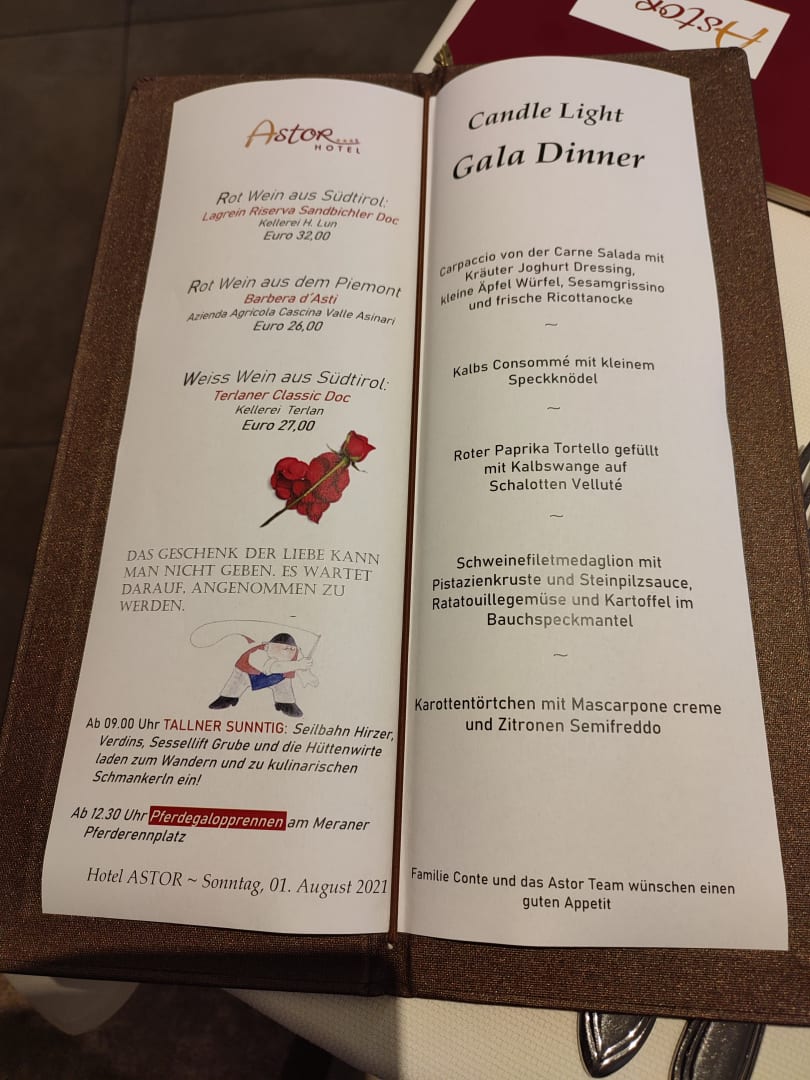 Astor
Astor
HOTEL
Rot Wein aus Südtirol:
Lagrein Riserva Sandbichler Doc
Kellerei H. Lun
Euro 32,00
Rot Wein aus dem Piemont
Barbera d´Asti
Azienda Agricola Cascina Valle Asinari
Euro 26,00
Weiss Wein aus Südtirol:
Terlaner Classic Doc
Kellerei Terlan
Euro 27,00
DAS GESCHENK DER LIEBE KANN
MAN NICHT GEBEN. ES WARTET
DARAUF, ANGENOMMEN ZU
WERDEN.
Ab 09.00 Uhr TALLNER SUNNTIG: Seilbahn Hirzer,
Verdins, Sessellift Grube und die Hüttenwirte
laden zum Wandern und zu kulinarischen
Schmankerln ein!
Ab 12.30 Uhr Pferdegalopprennen am Meraner
Pferderennplatz
Hotel ASTOR ~ Sonntag, 01. August 2021
Candle Light
Gala Dinner
Carpaccio von der Carne Salada mit
Kräuter Joghurt Dressing,
kleine Äpfel Würfel, Sesamgrissino
und frische Ricottanocke
~
Kalbs Consommé mit kleinem
Speckknödel
~
Roter Paprika Tortello gefüllt
mit Kalbswange auf
Schalotten Velluté
~
Schweinefiletmedaglion mit
Pistazienkruste und Steinpilzsauce,
Ratatouillegemüse und Kartoffel im
Bauchspeckmantel
~
Karottentörtchen mit Mascarpone creme
und Zitronen Semifreddo
Familie Conte und das Astor Team wünschen einen
guten Appetit